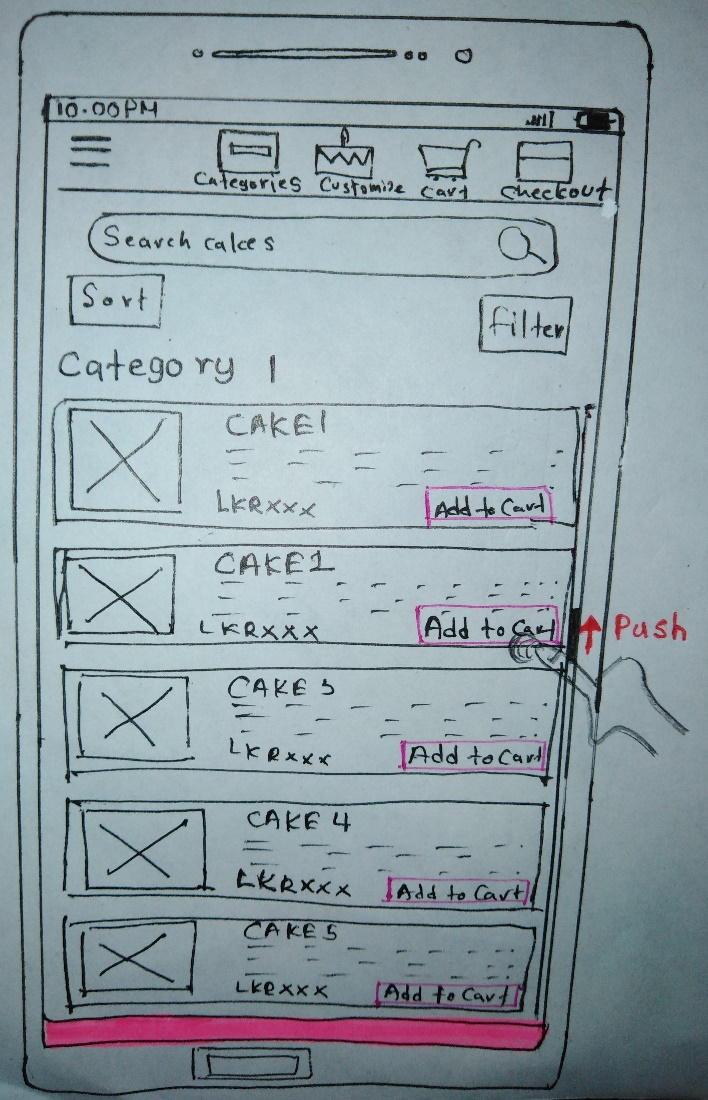 10.00PM
Categories Customize Cart Checkout
Search cakes
Sort
Filter
Category 1
CAKE1
LKRxxx Add to Cart
CAKE2
LKRXXX Add to Cart
Push
CAKE 3
LKRxxx Add to Cart
CAKE 4
LKRXXX Add to Cart
CAKE 5
LKRXXX Add to Cart